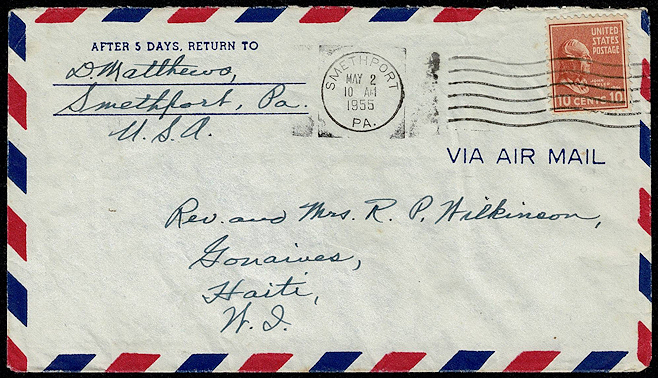 AFTER 5 DAYS, RETURN TO
D. Matthews,
Smethport, Pa.
U.S.A.
SMETHPORT
MAY 2
10 AM
1955
PA.
UNITED
STATES
POSTAGE
10 CENTS 10
VIA AIR MAIL
Rev. and Mrs. R. P. Wilkinson,
Gonaives,
Haiti,
W. I.